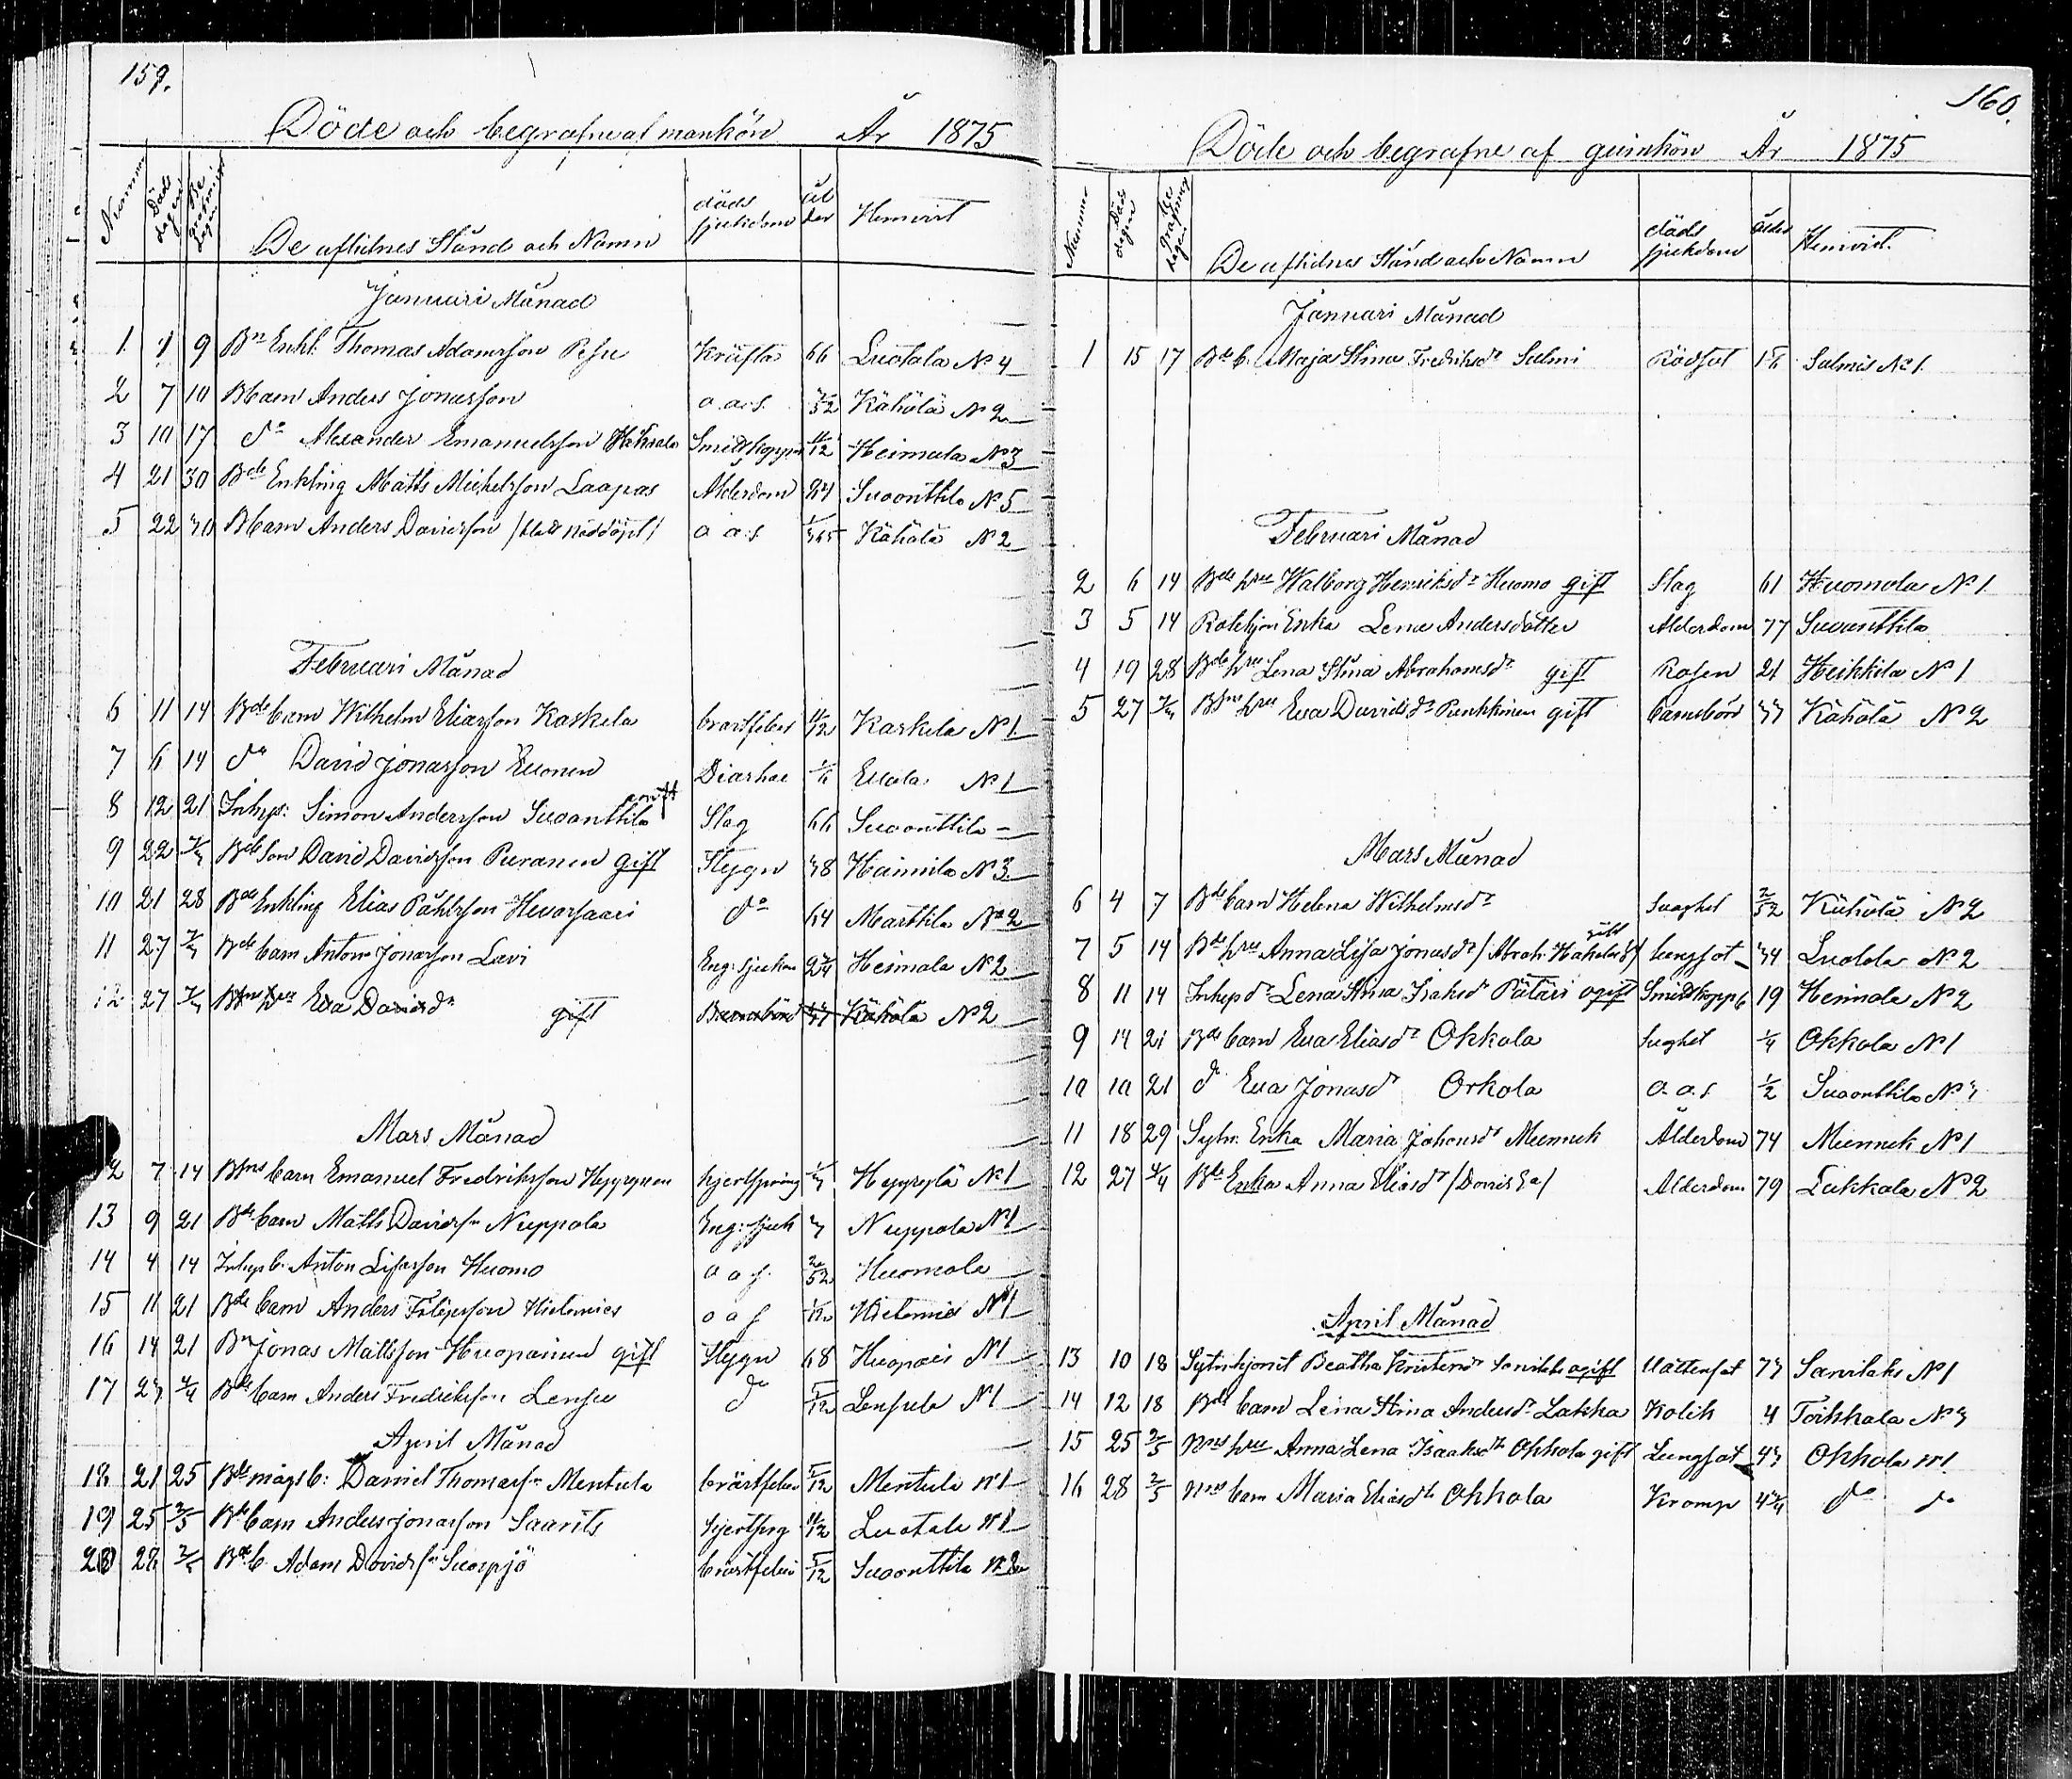 159.
Döde och begrafne af mankön År 1875
Nummer Döds dagen Begrafnings dagen De aflidnes Stånd och Namn döds sjukdom ålder Hemvist
Januari Månad
1 1 9 Bn Enkl. Thomas Adamsson Pesu Kräfta 66 Luotola No 4
2 7 10 Bbarn Anders Jonasson o.a.s. 3/52 Kähölä No 2
3 10 17 do Alexander Emanuelsson Smittkoppor 11/12 Heimala No 3
4 21 30 Bde Enkling Matts Michelsson Laapas Ålderdom Suoonttila No 5
5 22 30 Bbarn Anders Davidsson o a.s 1/365 Kähölä No 2
Februari Månad
6 11 14 Bde barn Wilhelm Eliasson Kaskela bröstfeber 11/12 Kaskela No 1
7 6 14 do David Jonasson Euonen Diarhae Euola No 1
8 12 21 Inhys: Simon Andersson Suoonttila Slag 66 Suoonttila
9 22 Bde Son David Davidsson Puranen gift Flygn 38 Haimila No 3
10 21 28 Bde Enkling Elias Påhlsson Hevosaari do 64 Marttila No 2
11 27 7/3 Bde barn Anton Jonasson Lavi Eng: sjukan 2 3/4 Heimala No 2
12 27 7/3 Eva Davidsdr gift Barnsbörd Kähölä No 2
Mars Månad
12 7 14 Bfns barn Emanuel Fredriksson Hyyrynen hjertspräng Hyyrylä No 1
13 9 21 Bde barn Matts Davidsn Nuppola Eng: sjuk 3 Nuppola No 1
14 4 14 Inhys b. Anton Lisasson Huomo o a s. 2/52 Huomola
15 11 21 Bde barn Anders Filipsson Hietamies o a s 1/12 Hietamies No 1
16 14 21 Bn Jonas Mattsson Huopainen gift Flygn 68 Huopais No 1
17 23 4/4 Bde barn Anders Fredriksson Lensu do 5/12 Lensula No 1
April Månad
18 21 25 Bds mågs b: Daniel Thomassn Mentula bröstfeber 5/12 Mentula No 1
19 25 2/5 Bde barn Anders Jonasson Saarits hjertspg 11/12 Luotola No 1
20 2/5 Bde b. Adam Davidsn bröstfeber 5/12 Suoonttila No 2
160.
Döde och begrafne af qvinkön År 1875
Nummer Döds dagen Begrafnings dagen De aflidnes Stånd och Namn döds sjukdom ålder Hemvist.
Januari Månad
1 15 17 Bde b. Maja Stina Fredriksdr Salmi Rödsot Salmis No 1.
Februari Månad
2 6 14 Bde hru Walborg Henriksdr Huomo gift Slag 61 Huomola No 1
3 5 14 Enka Lena Andersdotter Ålderdom 77 Suoonttila
4 19 28 Bde hru Lena Stina Abrahamsdr gift Rosen 21 Heikkila No 1
5 27 7/3 Bfns hru Eva Davidsdr Punkkinen gift barnsbörd 33 Kähölä No 2
Mars Månad
6 4 7 Bde barn Helena Wilhelmsdr Svaghet 2/52 Kähölä No 2
7 5 14 Bde hru Anna Lisa Jonasdr gift lungsot 34 Luotola No 2
8 11 14 Inhys dr Lena Stina Isaksdr Pätäri ogift Smittkopp 19 Heimola No 2
9 14 21 Bde barn Eva Eliasdr Okkola Svaghet 1/4 Okkola No 1
10 10 21 do Eva Jonasdr Orkola o.a.s 1/2 Suoonttila No 3
11 18 29 Sytn. Enka Maria Johansdr Munnuk Ålderdom 74 Munnuk No 1
12 27 4/4 Bde Enka Anna Eliasdr Ålderdom 79 Lakkala No 2
April Månad
13 10 18 Beatha Kristersdr ogift Vattensot 73 Sarvilaks No 1
14 12 18 Bde barn Lena Stina Andersdr Lakka Kolik 4 Toikkala No 3
15 25 2/5 hru Anna Lena Isaaksdr Okkola gift Lungsot 43 Okkola No 1.
16 28 2/5 barn Maria Eliasdr Okkola Kramp 4 3/4 do do